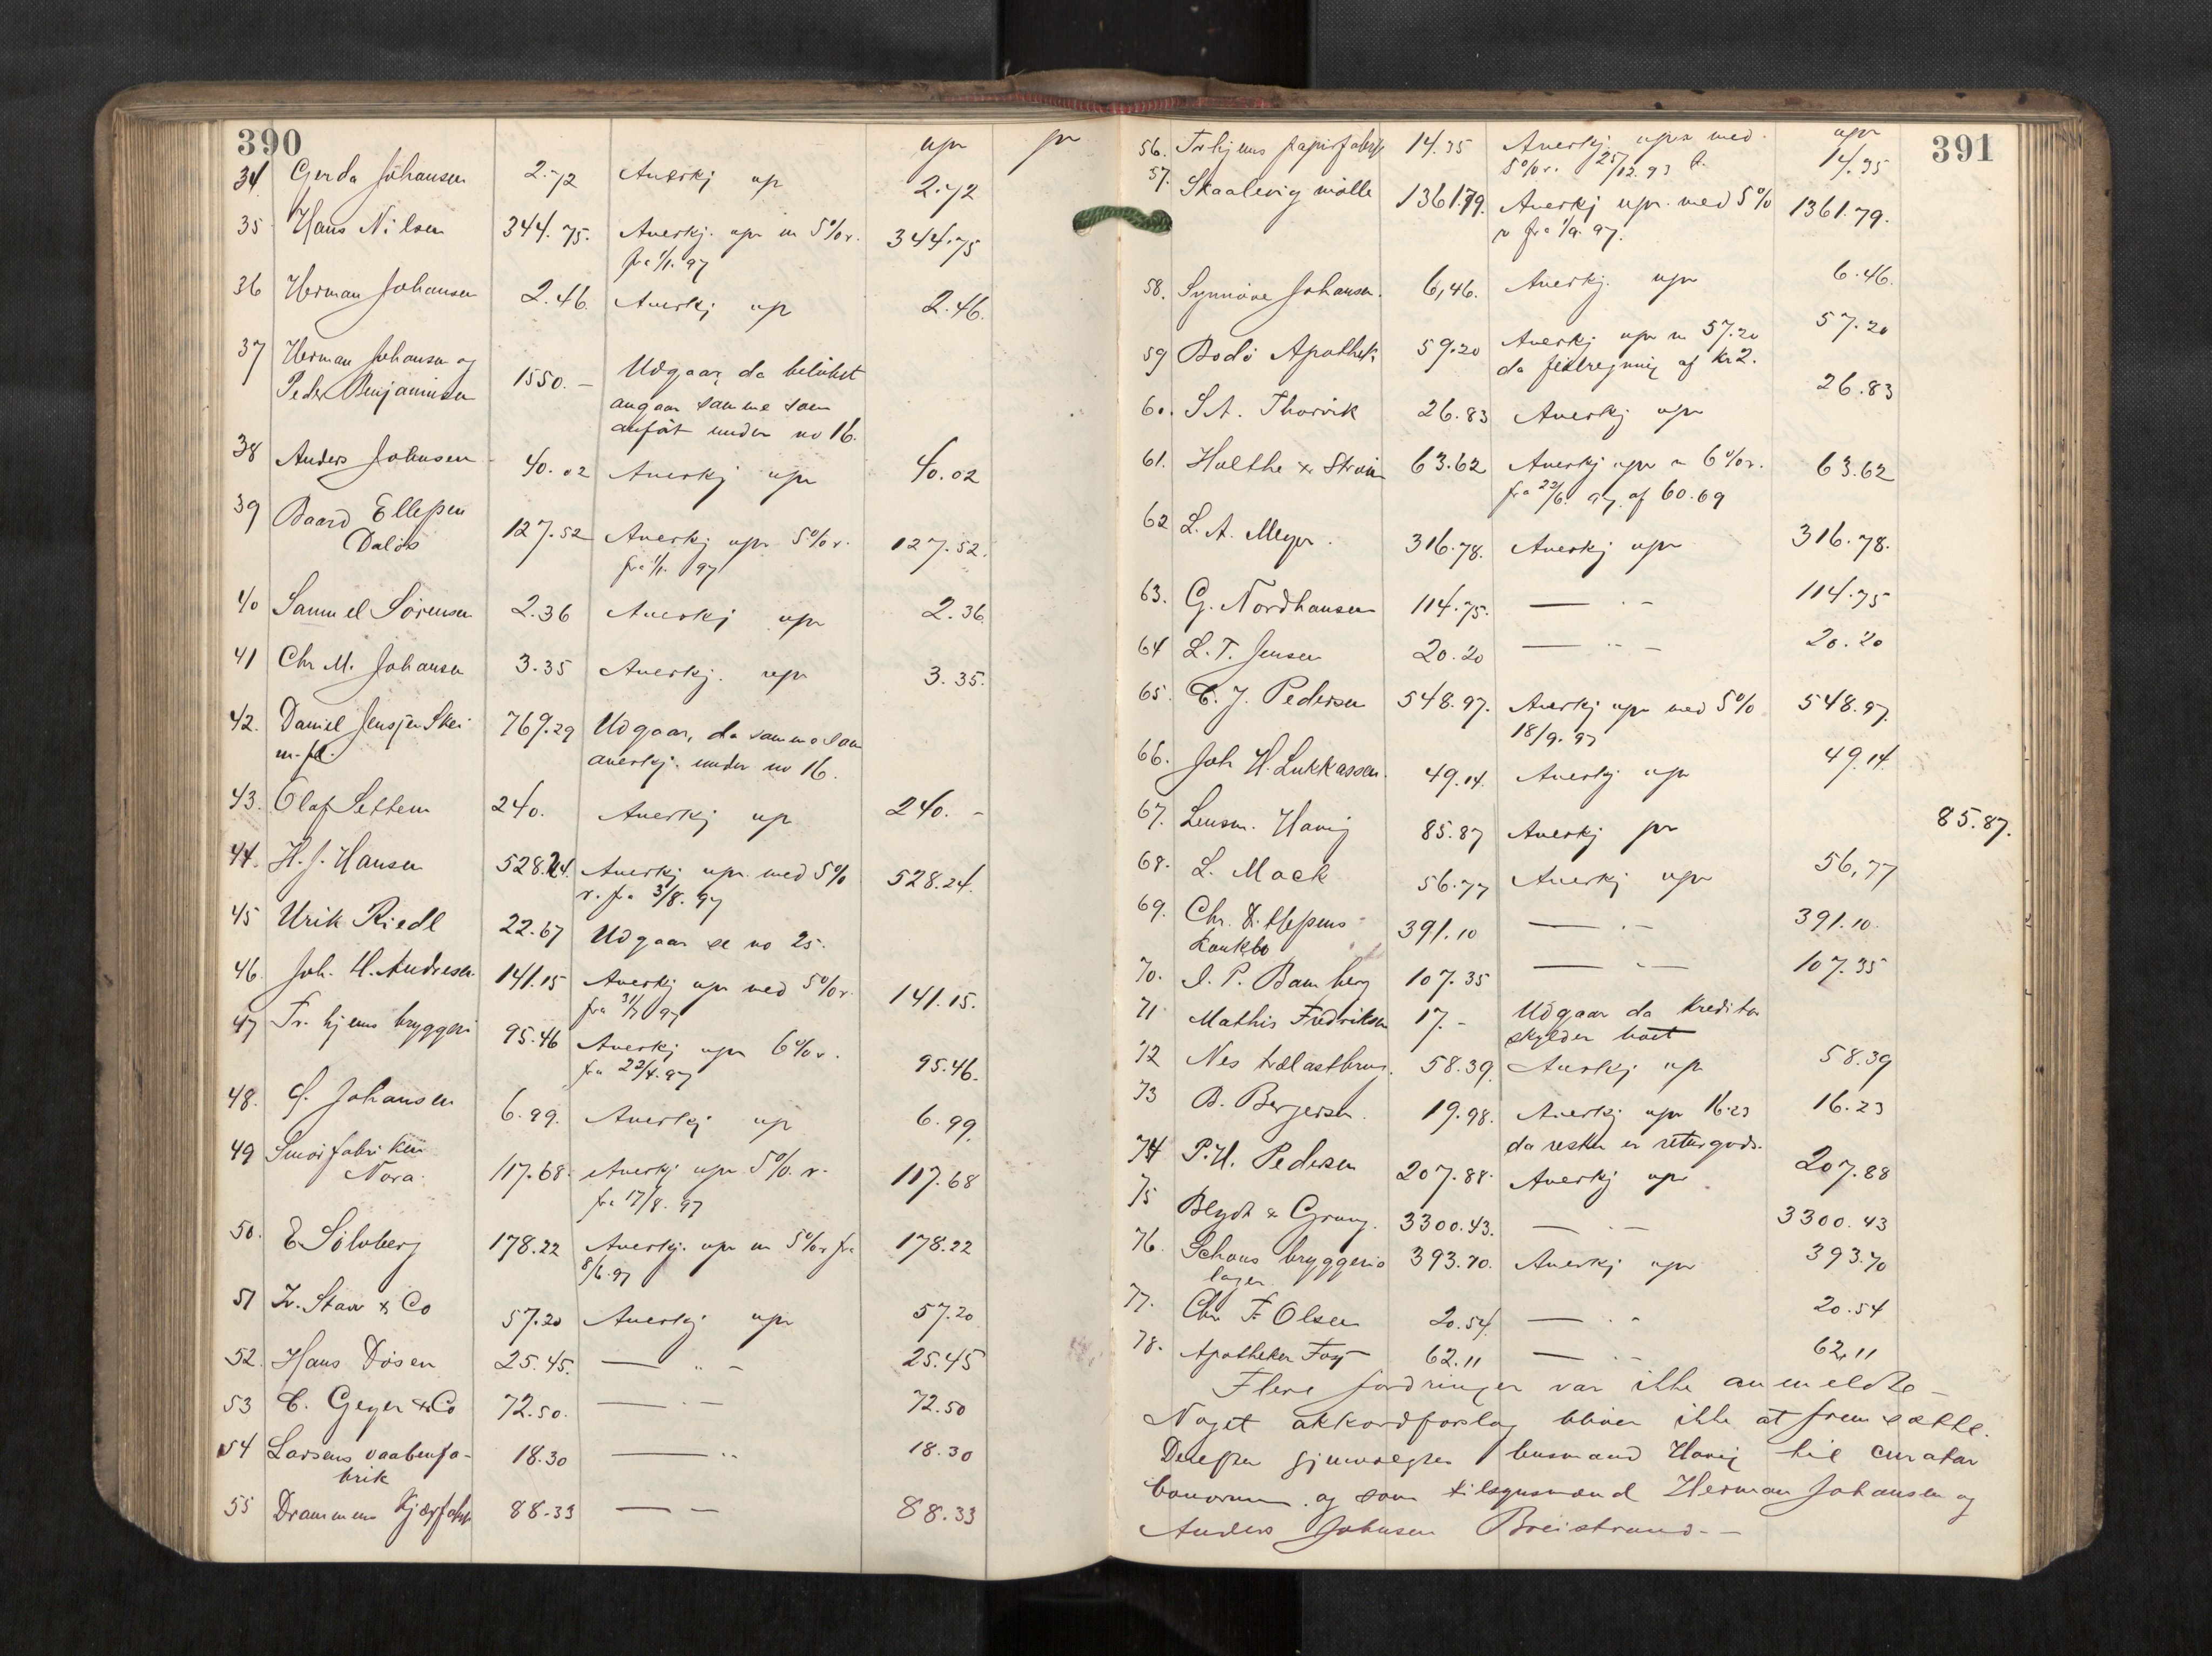 390
upr pr
34 Gerda Johansen 2.72 Anerkj upr 2.72
35 Hans Nilsen 344.75. Anerkj. upr m 5% r. 344.75
fra 1/1. 97
36 Herman Johansen 2.46. Anerkj upr 2.46.
37 Herman Johansen og
Peder Benjaminsen 1550.- Udgaar, da beløbet
angaar samme som
anført under no 16.
38 Anders Johnsen 40.02 Anerkj upr 40.02
39 Baard Ellefsen
Daløs 127.52 Anerkj upr 5% r. 127.52.
fra 1/1. 97
40 Samuel Sørensen 2.36 Anerkj upr 2.36.
41 Chr M. Johansen 3.35 Anerkj. upr 3.35.
42. Daniel Jensen Skei 769.29 Udgaar, da samme som
m. fl. anerkj. under no 16.
43. Olaf Settem 240. Anerkj upr 240.-
44. H. J. Hansen 528.24. Anerkj upr med 5% 528.24.
r. fra 3/8. 97
45 Urik Riedl 22.67 Udgaar se no 25.
46. Joh. H. Andresen 141.15 Anerkj upr med 5% r. 141.15.
fra 31/7 97
47 Tr.hjems bryggeri 95.46 Anerkj upr 6% r. 95.46.
fra 22/4. 97
48. Johansen 6.99. Anerkj upr 6.99.
49 Smørfabriken
Nora. 117.68. Anerkj. upr 5% r. 117.68
fra 17/8. 97
50. E Sølvberg 178.22 Anerkj. upr m 5% r fra 178.22
8/6. 97
51 Staw & Co 57.20 Anerkj upr 57.20
52. Hans Døsen 25.45. — " - 25.45
53 C. Geyer & Co 72.50. — " - 72.50
54 Larsens vaabenfa-
brik 18.30 — " 18.30
55 Drammens 88.33 — - 88.33
391
upr
56. Tr.hjems papirfabrik 14.35 Anerkj. upr med 14.35
5% r. 25/12. 93
57. Skaalevig mølle 1361.79. Anerkj upr. med 5% 1361.79.
r fra 1/9. 97.
58. Synnøve Johansen. 6,46. Anerkj. upr 6.46.
59 Bodø Apothek 59.20 Anerkj upr m 57.20 57.20
da feilregning af kr 2.
60. S. A. Thorvik 26.83 Anerkj upr 26.83
61. Holthe & Strøm 63.62 Anerkj upr m 6% r. 63.62
fra 22/6. 97. af 60.69
62 L. A. Meyer. 316.78. Anerkj upr 316.78.
63. G. Nordhausen 114.75. — " - 114.75
64 L. T. Jensen 20.20 — " - 20.20
65. C. J. Pedersen 548.97. Anerkj upr med 5% 548.97.
18/9. 97
66. Joh H. Lukkassen. 49.14. Anerkj upr 49.14.
67. Lensm. Havig 85.87 Anerkj pr 85.87.
68. L. Mack 56.77 Anerkj upr 56,77
69. Chr. Ellefsens
konkbo 391.10 — " - 391.10.
70. I. P. Bamberg 107.35 — " - 107.35
71 Mathis Fredriksen 17.- Udgaar da kreditor
skylder boet
72 Nes 58.39. Anerkj upr 58.39
73 B. Bergersen. 19.98. Anerkj upr 16.23 16.23
da resten er returgods.
74 P. H. Pedersen 207.88. Anerkj upr 207.88
75 Blydt & Grung. 3300.43. — " - 3300.43
76. Schous bryggeris 393.70. Anerkj upr 393.70
lager
77. Chr F. Olsen 20.54. — " - 20.54
78. Apotheker 62.11 — " - 62,11
Flere fordringer var ikke anmeldte -
Noget akkordforslag bliver ikke at fremsætte.
Derefter gjenvalgtes lensmand Havig til curator
bonorum og som tilsynsmænd Herman Johansen og
Anders Johnsen Breistrand. -